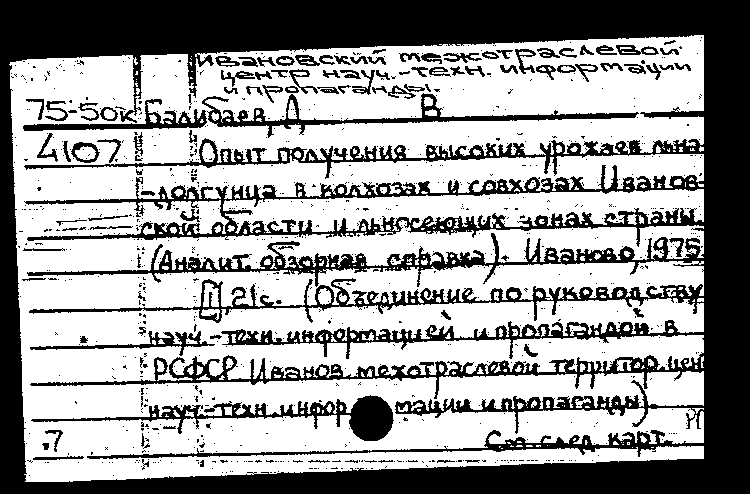 Ивановский межотраслевой
центр науч.-техн. информации
и пропаганды.
75-50к Балибаев, Д В
4107 Опыт получения высоких урожаев льна-
-долгунца в колхозах и совхозах Иванов-
ской области и льносеющих зонах страны.
(Аналит. обзорная справка). Иваново, 1975.
[1], 21 с. (Объединение по руководству
науч.-техн. информацией и пропагандой в
РСФСР Иванов. межотраслевой территор. цен
науч.-техн. информации и пропаганды).
.7 См след. карт.